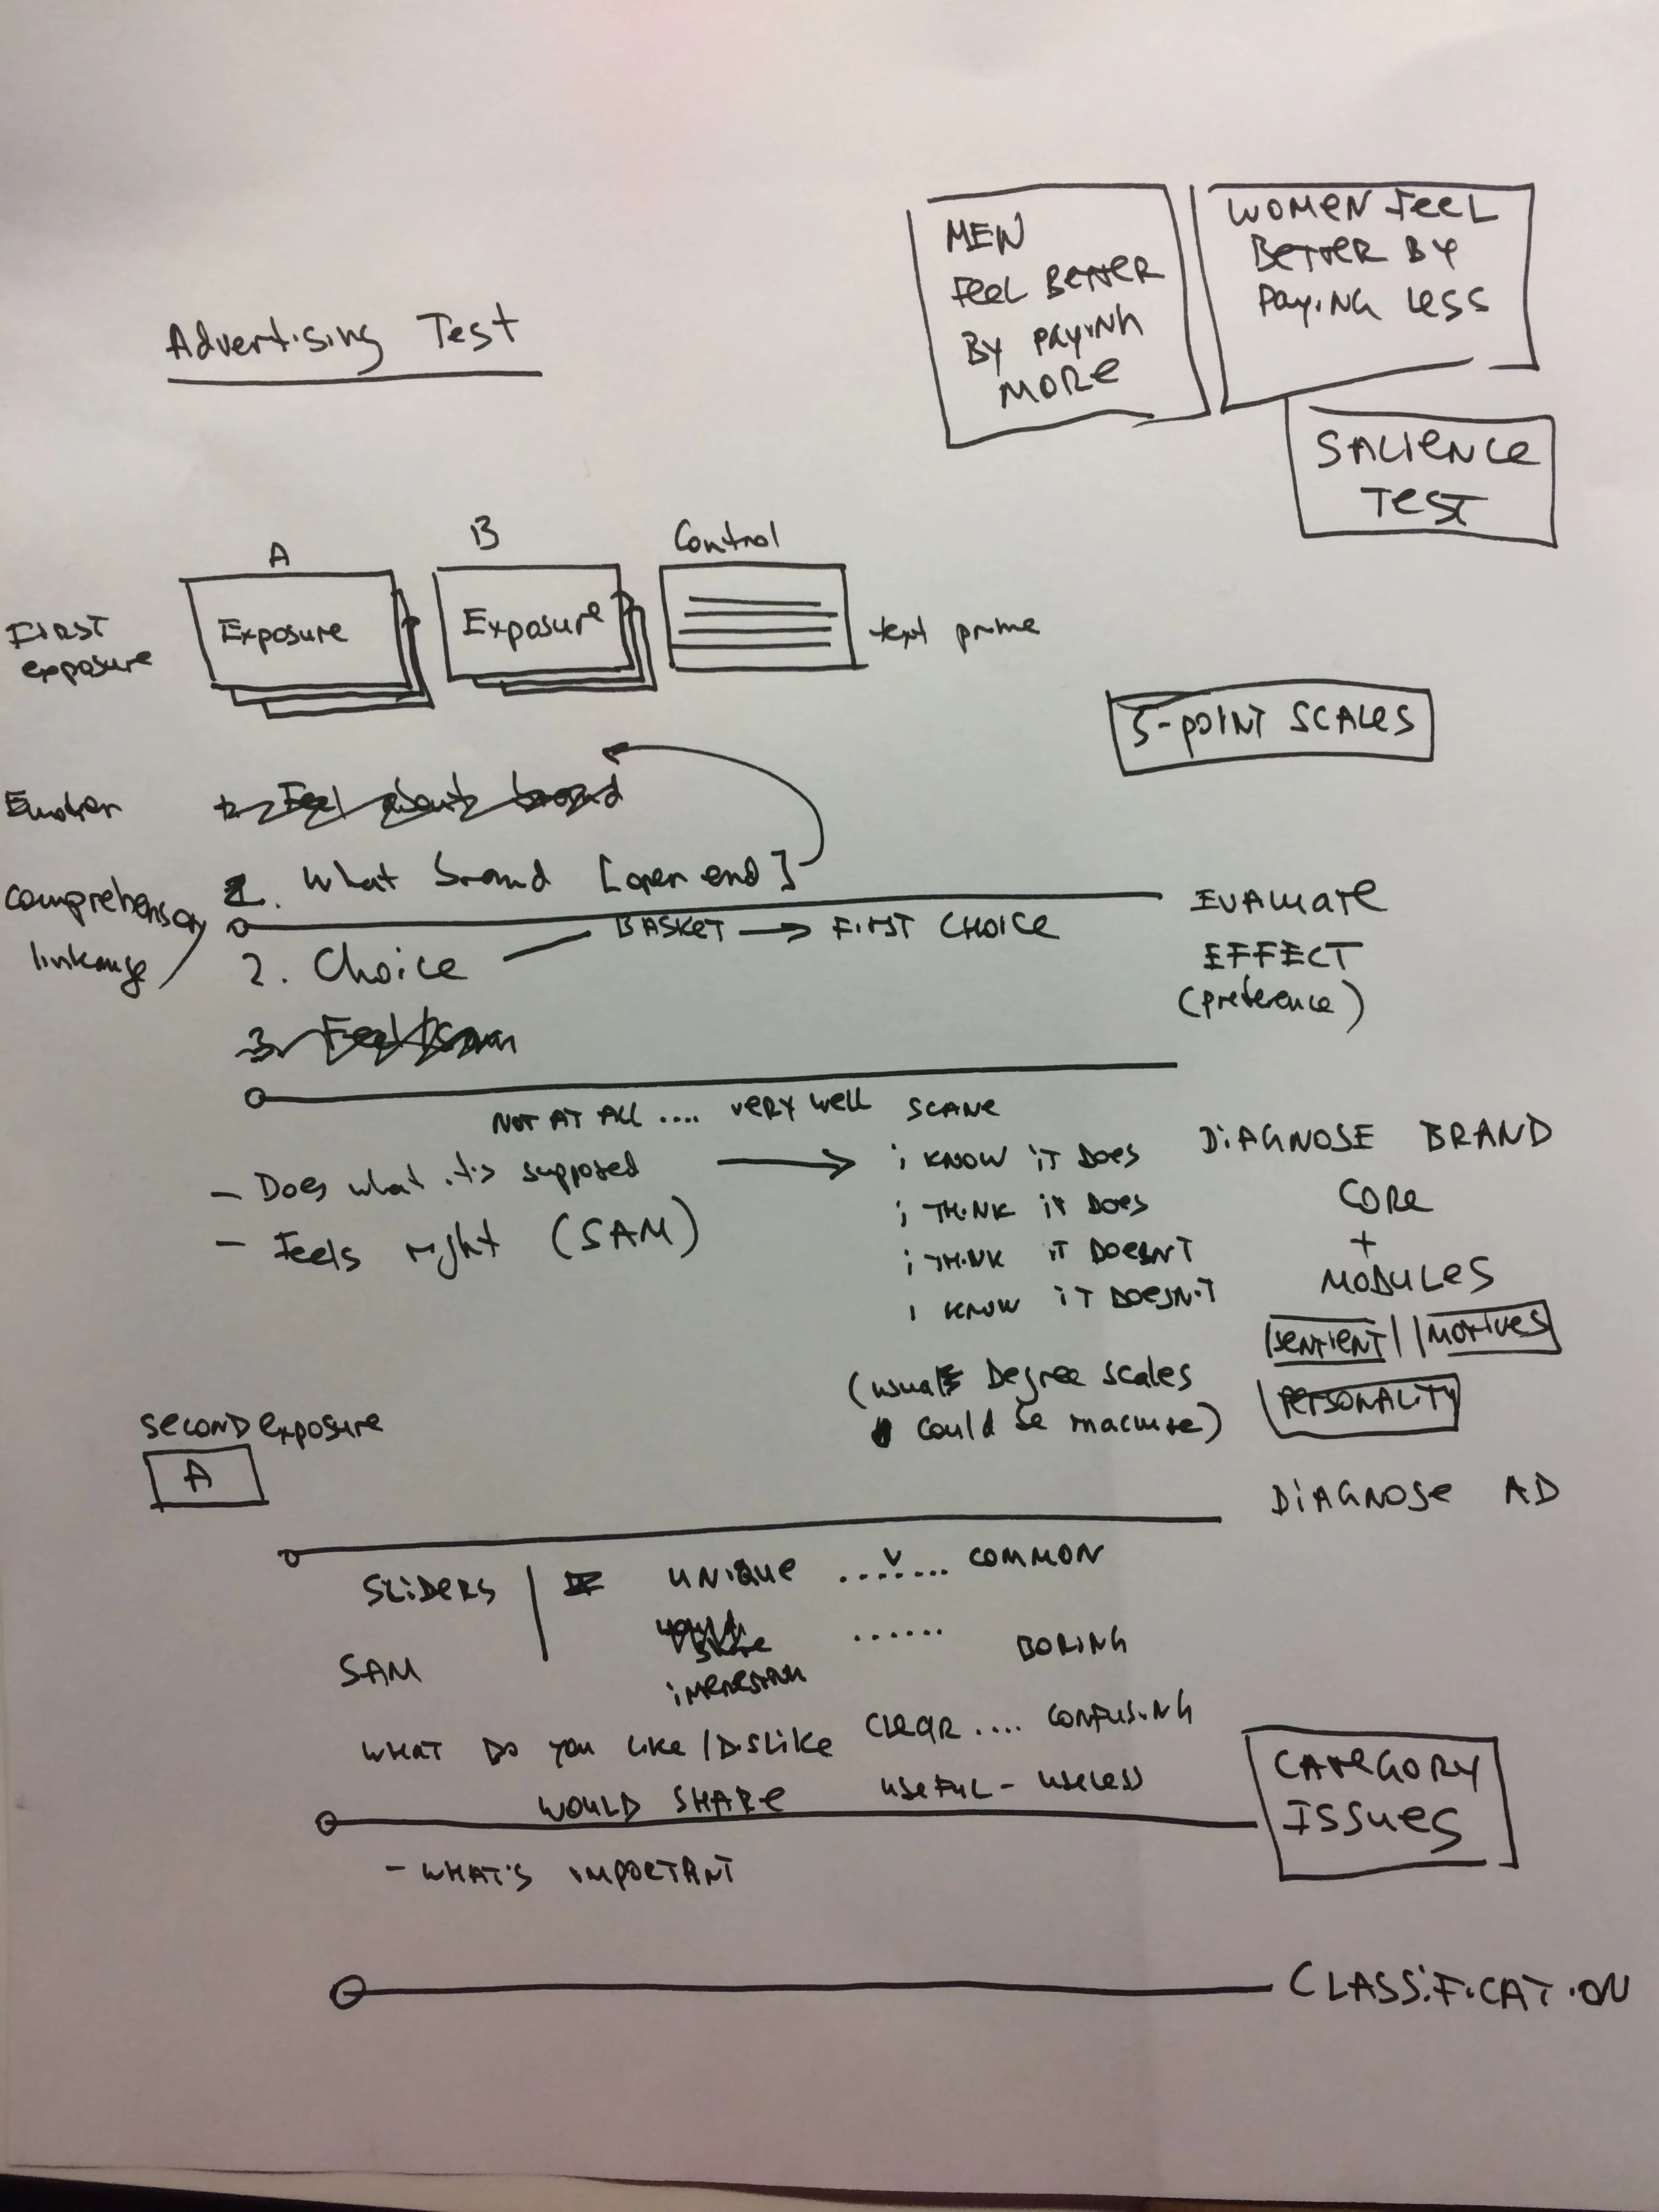 MEN
FEEL BETTER
BY PAYING
MORE
WOMEN FEEL
BETTER BY
PAYING LESS
SALIENCE
TEST
Advertising Test
A
B
Control
FIRST
exposure
Exposure
Exposure
text prime
5-POINT SCALES
Emotion
Feel about brand
1. What brand [open end]
comprehension/
linkage
EVALUATE
EFFECT
(preference)
BASKET → FIRST CHOICE
2. Choice
3. Feel
NOT AT ALL .... VERY WELL
- Does what it's supposed →
- Feels right (SAM)
I KNOW IT DOES
I THINK IT DOES
I THINK IT DOESN'T
I KNOW IT DOESN'T
(usual Degree scales
could be inaccurate)
DIAGNOSE BRAND
CORE
+
MODULES
MOTIVES
PERSONALITY
SECOND exposure
A
DIAGNOSE AD
SLIDERS
UNIQUE ....... COMMON
...... BORING
SAM
CLEAR .... CONFUSING
WHAT DO YOU LIKE/DISLIKE
WOULD SHARE
USEFUL - USELESS
CATEGORY
ISSUES
- WHAT'S IMPORTANT
CLASSIFICATION